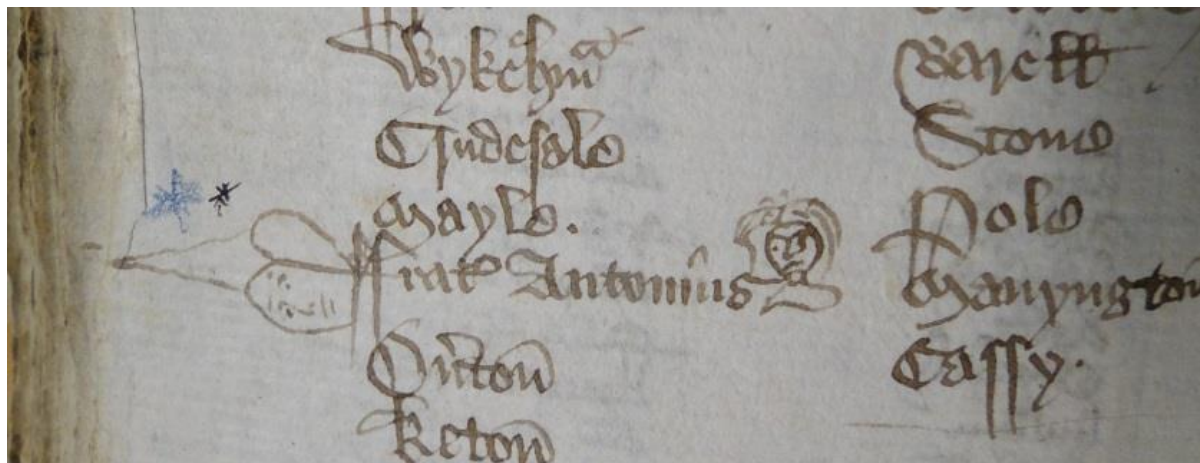 Wykehm
Tyndesole
Mayle.
ffrater Antonius
Orton
Keton
Barell
Stone
Pole
Manyngton
Cassy.